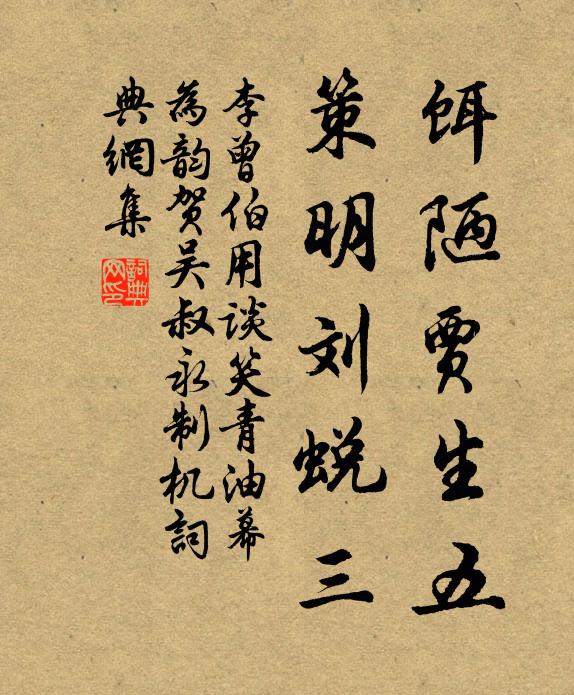 饵陋贾生五
策明刘蜕三
李曾伯用谈笑青油幕
為韵贺吴叔永制机詞
典網集
詞典网印